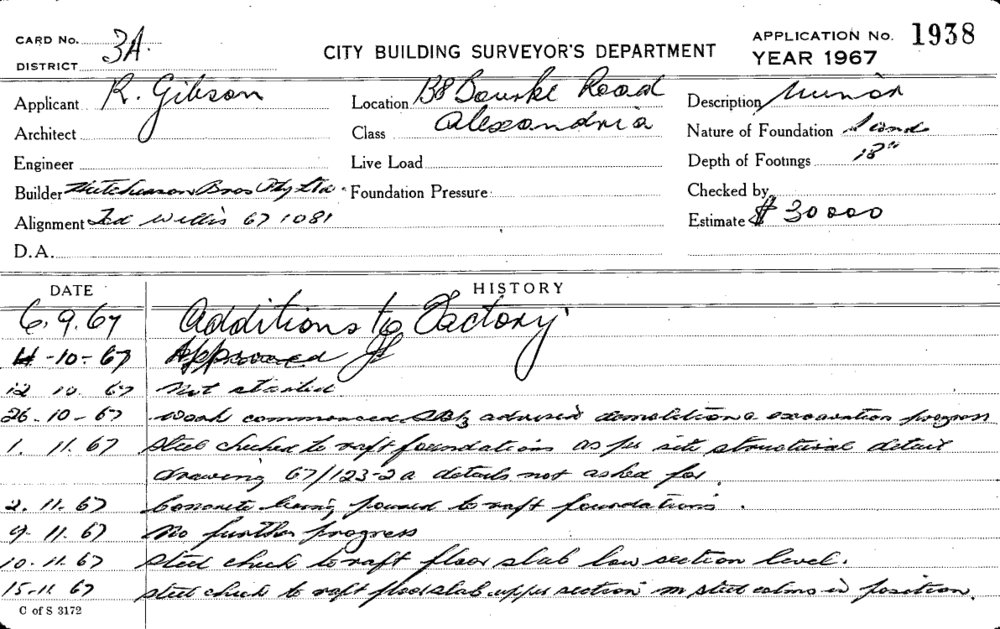 CARD No. 3A.
DISTRICT
CITY BUILDING SURVEYOR'S DEPARTMENT
APPLICATION No. 1938
YEAR 1967
Applicant R. Gibson
Location 138 Bourke Road
Description Minor
Architect
Class Alexandria
Nature of Foundation Sand
Engineer
Live Load
Depth of Footings 18"
Builder Hutcherson Bros Pty Ltd.
Foundation Pressure
Checked by
Alignment Fd Willis 67 1081
Estimate $ 30000
D.A.
DATE
HISTORY
6.9.67 Additions to Factory
4-10-67 Approved
12 10 67 Not started
26-10-67 Work commenced advised demolition & excavation progress
1. 11. 67 Steel checked to raft foundations as per site structural detail
drawing 67/123-2a details not asked for.
2. 11. 67 Concrete being poured to raft foundations.
9. 11. 67 No further progress
10. 11. 67 Steel check to raft floor slab low section level.
15-11 67 Steel check to raft floor slab upper section steel colms in position.
C of S 3172